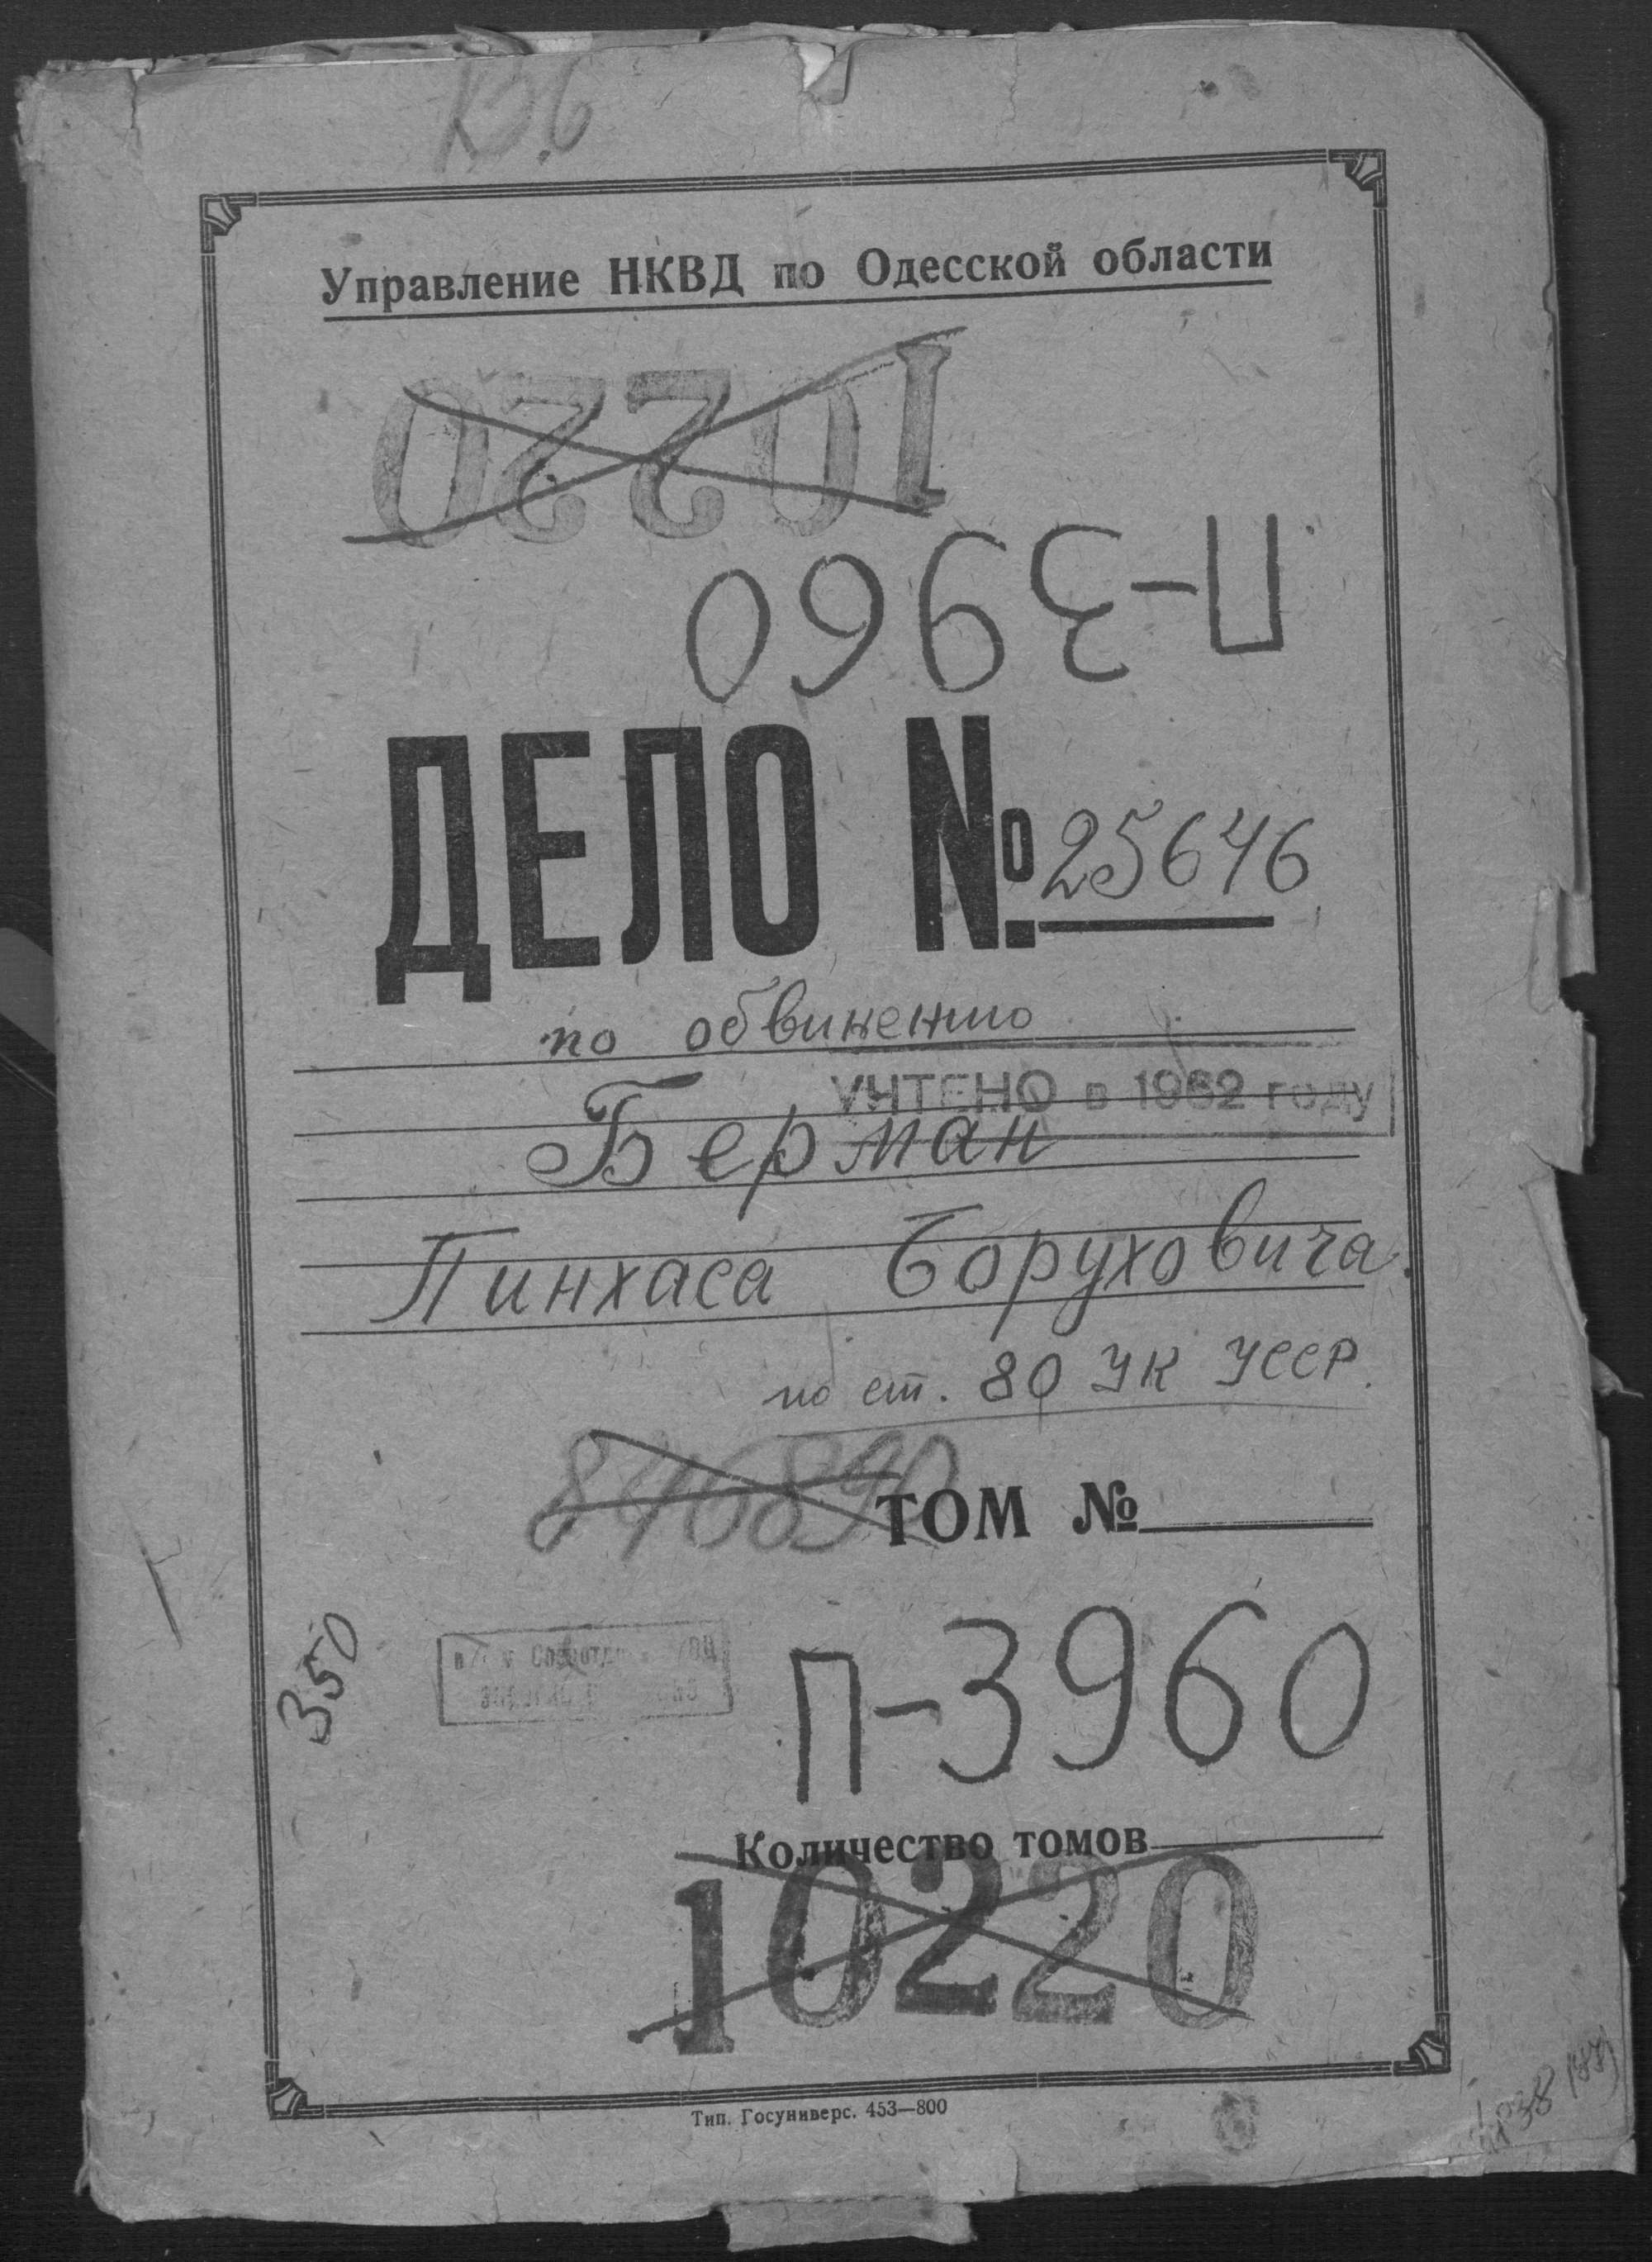 Управление НКВД по Одесской области
10220
П-3960
ДЕЛО № 25646
по обвинению
УЧТЕНО в 1962 году
Берман
Пинхаса Боруховича.
по ст. 80 УК УССР.
846890
ТОМ №
350
П-3960
Количество томов
10220
Тип. Госуниверс. 453—800